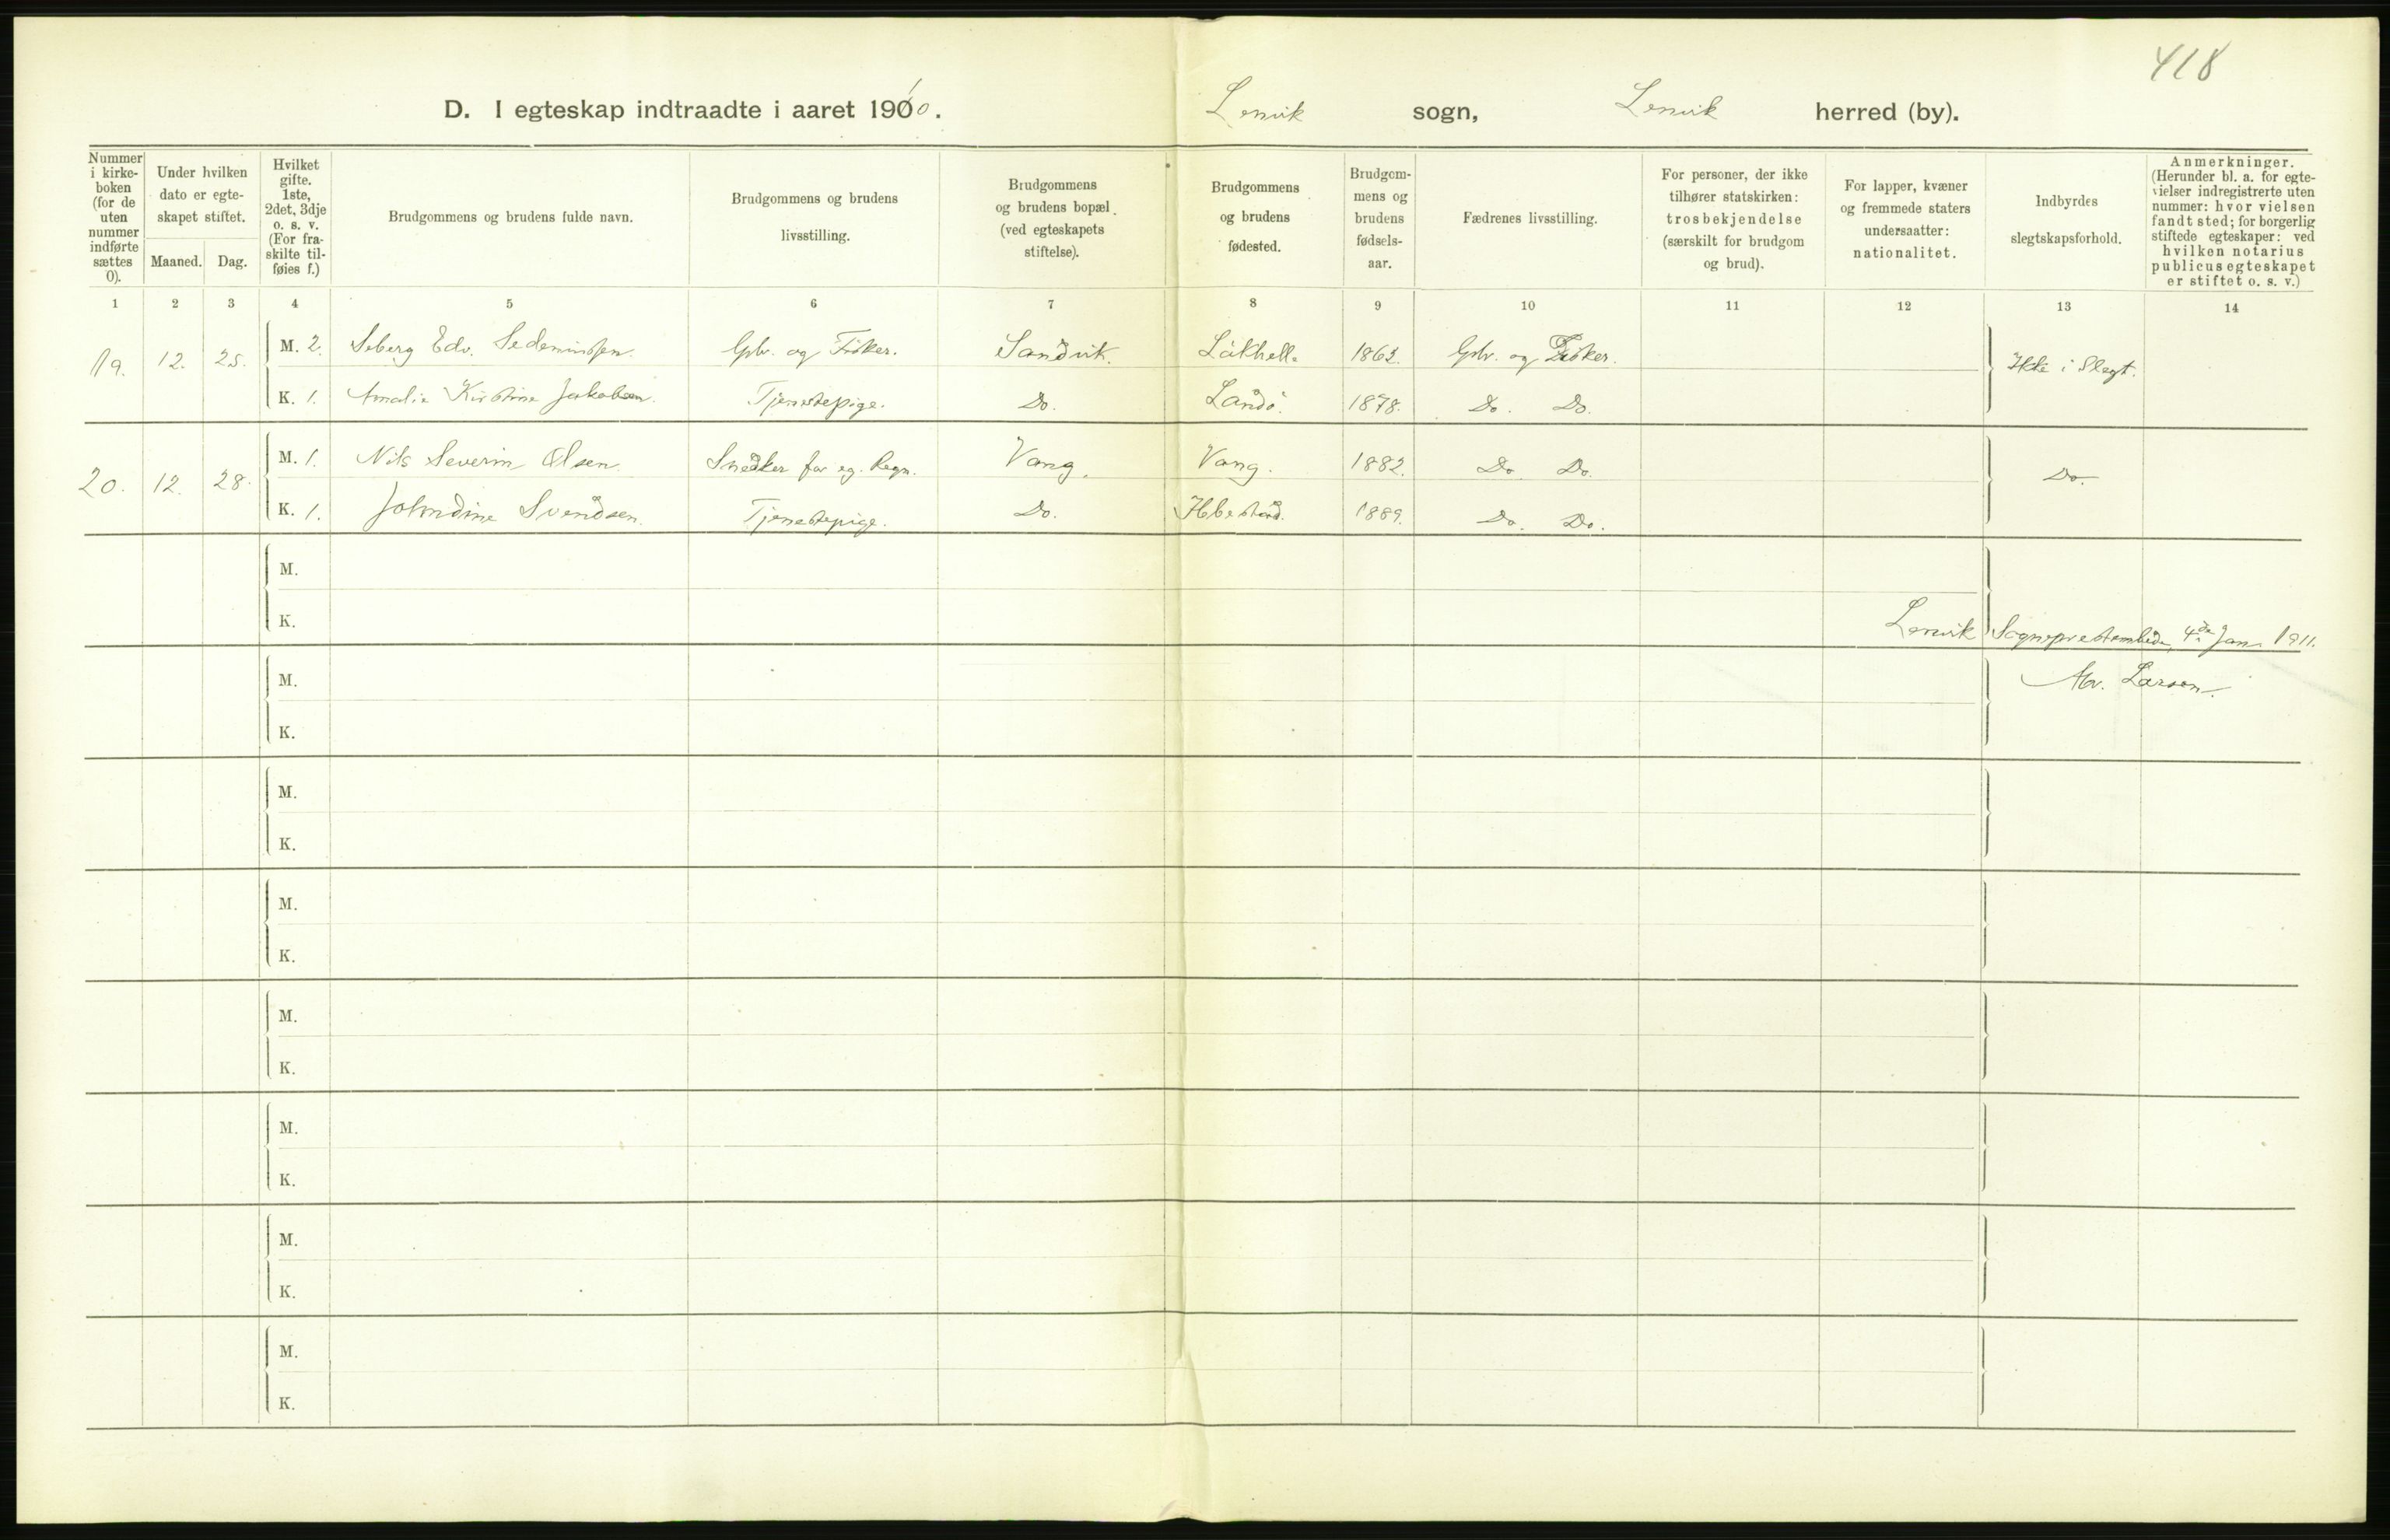 418
D. I egteskap indtraadte i aaret 1910. Lenvik sogn, Lenvik herred (by).
Nummer i kirkeboken (for de uten nummer indførte sættes 0).
Under hvilken dato er egteskapet stiftet.
Maaned. Dag.
Hvilket gifte. 1ste, 2det, 3dje o. s. v. (For fraskilte tilføies f.)
Brudgommens og brudens fulde navn.
Brudgommens og brudens livsstilling.
Brudgommens og brudens bopæl (ved egteskapets stiftelse).
Brudgommens og brudens fødested.
Brudgommens og brudens fødselsaar.
Fædrenes livsstilling.
For personer, der ikke tilhører statskirken: trosbekjendelse (særskilt for brudgom og brud).
For lapper, kvæner og fremmede staters undersaatter: nationalitet.
Indbyrdes slegtskapsforhold.
Anmerkninger. (Herunder bl. a. for egtevielser indregistrerte uten nummer: hvor vielsen fandt sted; for borgerlig stiftede egteskaper: ved hvilken notarius publicus egteskapet er stiftet o. s. v.)
1 2 3 4 5 6 7 8 9 10 11 12 13 14
19. 12. 25. M. 2. Seberg Edv. Gbr. og Fisker. Sandvik. 1862. Gbr. og Fisker. Ikke i Slegt.
K. 1. Amalie Kirstine Jakobsen. Tjenestepige. Do. Sandö. 1878. Do. Do.
20. 12. 28. M. 1. Nils Severin Olsen. Snedker for eg. Regn. Vang. Vang. 1882. Do. Do. Do.
K. 1. Johndine Svendsen. Tjenestepige. Do. 1889. Do. Do.
M.
K. Lenvik Sogneprestembede, 4de Jan. 1911.
M. Larsen.
K.
M.
K.
M.
K.
M.
K.
M.
K.
M.
K.
M.
K.